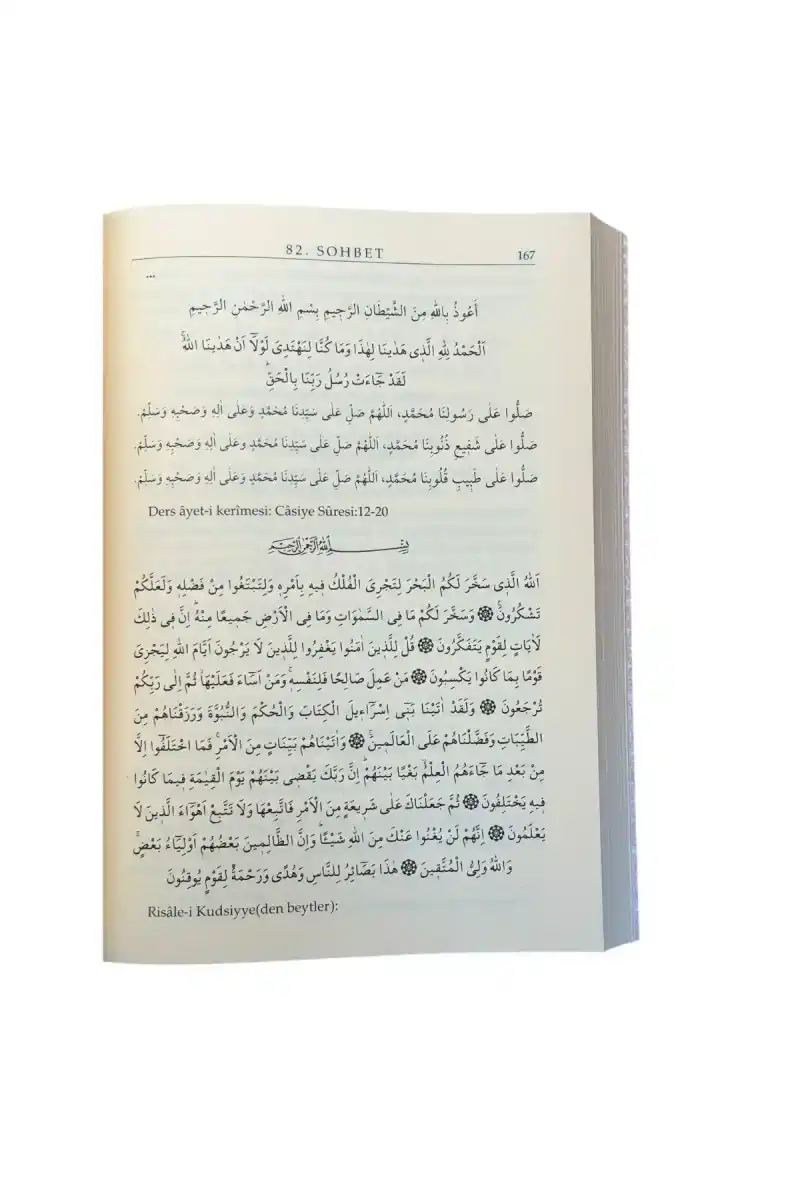 82. SOHBET 167
...
أَعُوذُ بِاللهِ مِنَ الشَّيْطَانِ الرَّجِيمِ بِسْمِ اللهِ الرَّحْمٰنِ الرَّحِيمِ
اَلْحَمْدُ لِلهِ الَّذِي هَدٰينَا لِهٰذَا وَمَا كُنَّا لِنَهْتَدِيَ لَوْلَٓا اَنْ هَدٰينَا اللهُۚ
لَقَدْ جَٓاءَتْ رُسُلُ رَبِّنَا بِالْحَقِّۜ
صَلُّوا عَلٰى رَسُولِنَا مُحَمَّدٍ، اَللّٰهُمَّ صَلِّ عَلٰى سَيِّدِنَا مُحَمَّدٍ وَعَلٰى اٰلِهِ وَصَحْبِهِ وَسَلِّمْ.
صَلُّوا عَلٰى شَفِيعِ ذُنُوبِنَا مُحَمَّدٍ، اَللّٰهُمَّ صَلِّ عَلٰى سَيِّدِنَا مُحَمَّدٍ وَعَلٰى اٰلِهِ وَصَحْبِهِ وَسَلِّمْ.
صَلُّوا عَلٰى طَبِيبِ قُلُوبِنَا مُحَمَّدٍ، اَللّٰهُمَّ صَلِّ عَلٰى سَيِّدِنَا مُحَمَّدٍ وَعَلٰى اٰلِهِ وَصَحْبِهِ وَسَلِّمْ.
Ders âyet-i kerîmesi: Câsiye Sûresi:12-20
بِسْمِ اللهِ الرَّحْمٰنِ الرَّحِيمِ
اَللهُ الَّذِي سَخَّرَ لَكُمُ الْبَحْرَ لِتَجْرِيَ الْفُلْكُ فِيهِ بِاَمْرِهِ وَلِتَبْتَغُوا مِنْ فَضْلِهِ وَلَعَلَّكُمْ
تَشْكُرُونَۚ ۞ وَسَخَّرَ لَكُمْ مَا فِي السَّمٰوَاتِ وَمَا فِي الْاَرْضِ جَمِيعًا مِنْهُۜ اِنَّ فِي ذٰلِكَ
لَاٰيَاتٍ لِقَوْمٍ يَتَفَكَّرُونَ ۞ قُلْ لِلَّذِينَ اٰمَنُوا يَغْفِرُوا لِلَّذِينَ لَا يَرْجُونَ اَيَّامَ اللهِ لِيَجْزِيَ
قَوْمًا بِمَا كَانُوا يَكْسِبُونَ ۞ مَنْ عَمِلَ صَالِحًا فَلِنَفْسِهِۚ وَمَنْ اَسَٓاءَ فَعَلَيْهَاۘ ثُمَّ اِلٰى رَبِّكُمْ
تُرْجَعُونَ ۞ وَلَقَدْ اٰتَيْنَا بَنِٓي اِسْرَٓاءِيلَ الْكِتَابَ وَالْحُكْمَ وَالنُّبُوَّةَ وَرَزَقْنَاهُمْ مِنَ
الطَّيِّبَاتِ وَفَضَّلْنَاهُمْ عَلَى الْعَالَمِينَۚ ۞ وَاٰتَيْنَاهُمْ بَيِّنَاتٍ مِنَ الْاَمْرِۚ فَمَا اخْتَلَفُٓوا اِلَّا
مِنْ بَعْدِ مَا جَٓاءَهُمُ الْعِلْمُۙ بَغْيًا بَيْنَهُمْۜ اِنَّ رَبَّكَ يَقْضِي بَيْنَهُمْ يَوْمَ الْقِيٰمَةِ فِيمَا كَانُوا
فِيهِ يَخْتَلِفُونَ ۞ ثُمَّ جَعَلْنَاكَ عَلٰى شَرِيعَةٍ مِنَ الْاَمْرِ فَاتَّبِعْهَا وَلَا تَتَّبِعْ اَهْوَٓاءَ الَّذِينَ لَا
يَعْلَمُونَ ۞ اِنَّهُمْ لَنْ يُغْنُوا عَنْكَ مِنَ اللهِ شَيْـًٔاۜ وَاِنَّ الظَّالِمِينَ بَعْضُهُمْ اَوْلِيَٓاءُ بَعْضٍۚ
وَاللهُ وَلِيُّ الْمُتَّقِينَ ۞ هٰذَا بَصَٓائِرُ لِلنَّاسِ وَهُدًى وَرَحْمَةٌ لِقَوْمٍ يُوقِنُونَ
Risâle-i Kudsiyye(den beytler):